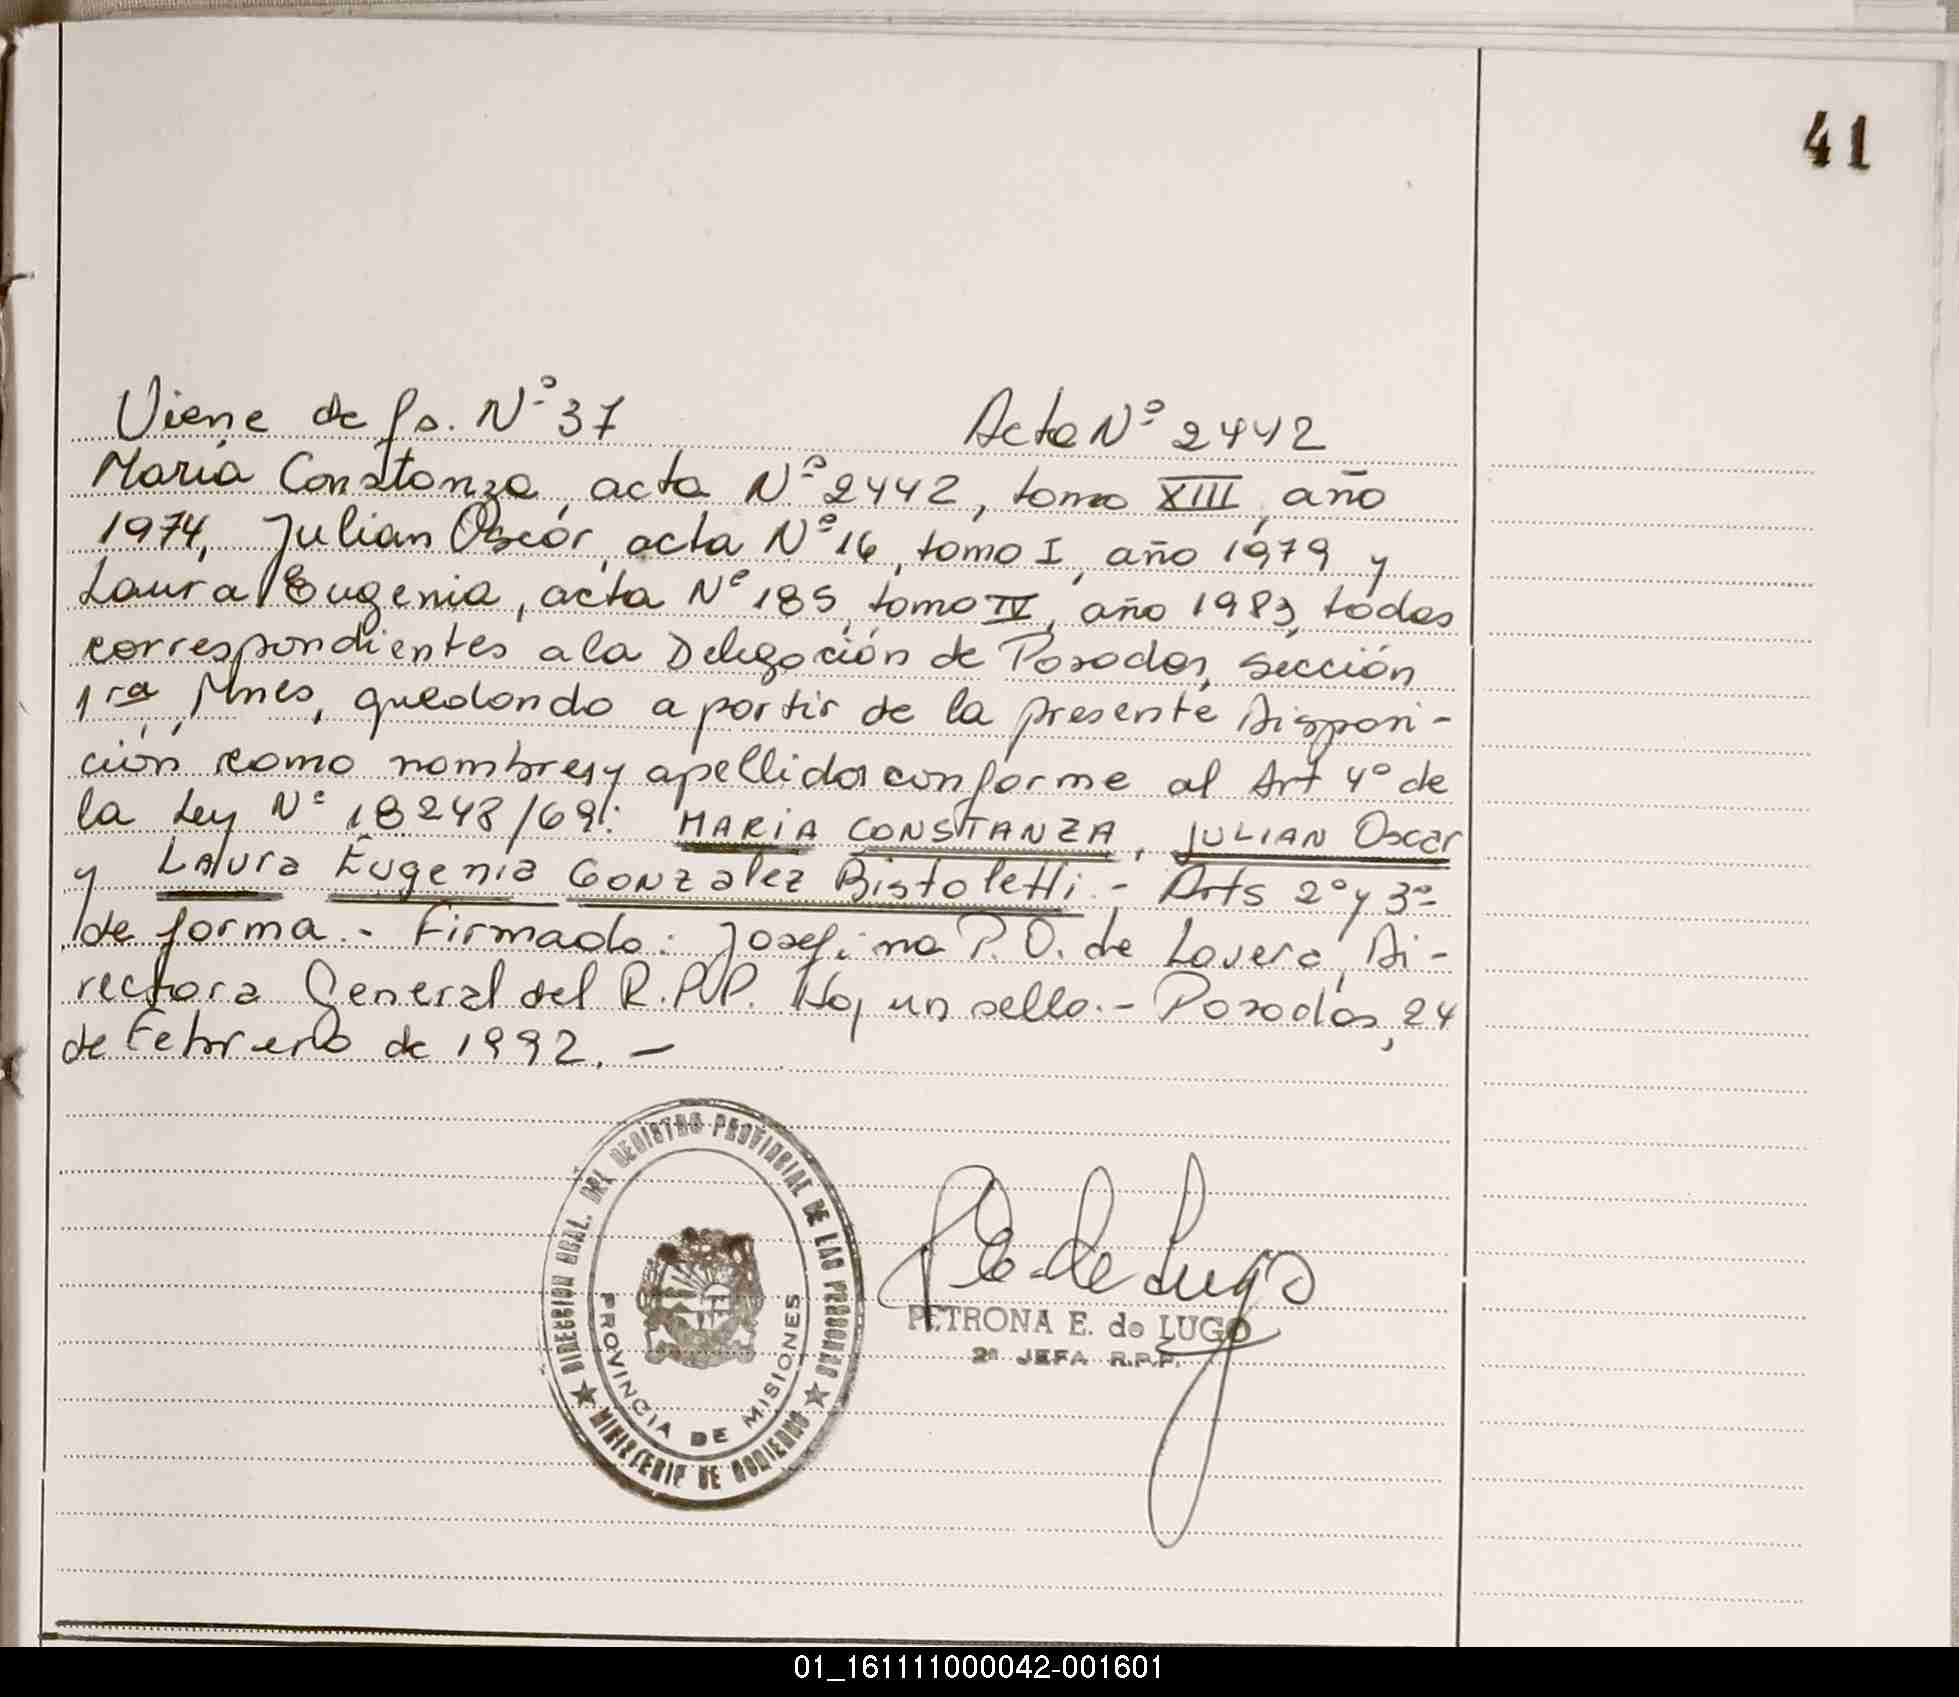 41
Viene de fs. Nº 37 Acta Nº 2442
María Constanza, acta Nº 2442, tomo XIII, año
1974, Julian Oscar, acta Nº 16, tomo I, año 1979 y
Laura Eugenia, acta Nº 185, tomo IV, año 1983, todas
correspondientes a la Delegación de Posadas, sección
1ra, Mnes, quedando a partir de la presente Disposi-
ción como nombres y apellidos conforme al Art 4º de
la Ley Nº 18248/69: MARIA CONSTANZA, JULIAN Oscar
y Laura Eugenia Gonzalez Bistoletti.- Arts 2º y 3º-
de forma.- Firmado: Josefina P. O. de Lovera, Di-
rectora General del R.P.P. Hay un sello.- Posadas, 24
de Febrero de 1992.-
DIRECCION GRAL. DEL REGISTRO PROVINCIAL DE LAS PERSONAS
PROVINCIA DE MISIONES
★ MINISTERIO DE GOBIERNO ★
P. E. de Lugo
PETRONA E. de LUGO
2ª JEFA R.P.P.
01_161111000042-001601